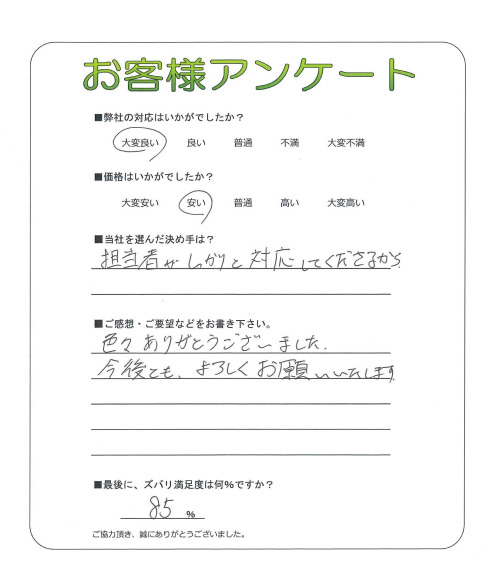 お客様アンケート
■弊社の対応はいかがでしたか？
大変良い 良い 普通 不満 大変不満
■価格はいかがでしたか？
大変安い 安い 普通 高い 大変高い
■当社を選んだ決め手は？
担当者がしっかりと対応してくださるから
■ご感想・ご要望などをお書き下さい。
色々ありがとうございました.
今後とも、よろしくお願いいたします
■最後に、ズバリ満足度は何％ですか？
85 ％
ご協力頂き、誠にありがとうございました。